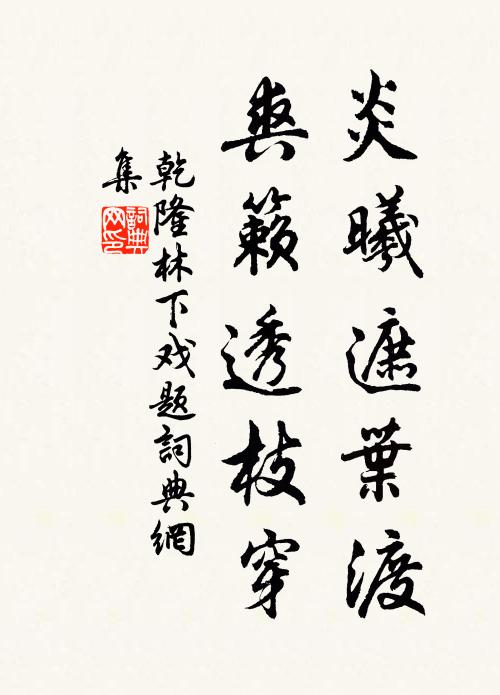 炎曦遮葉渡
爽籟透枝穿
乾隆林下戏题詞典網
集
詞典
网印